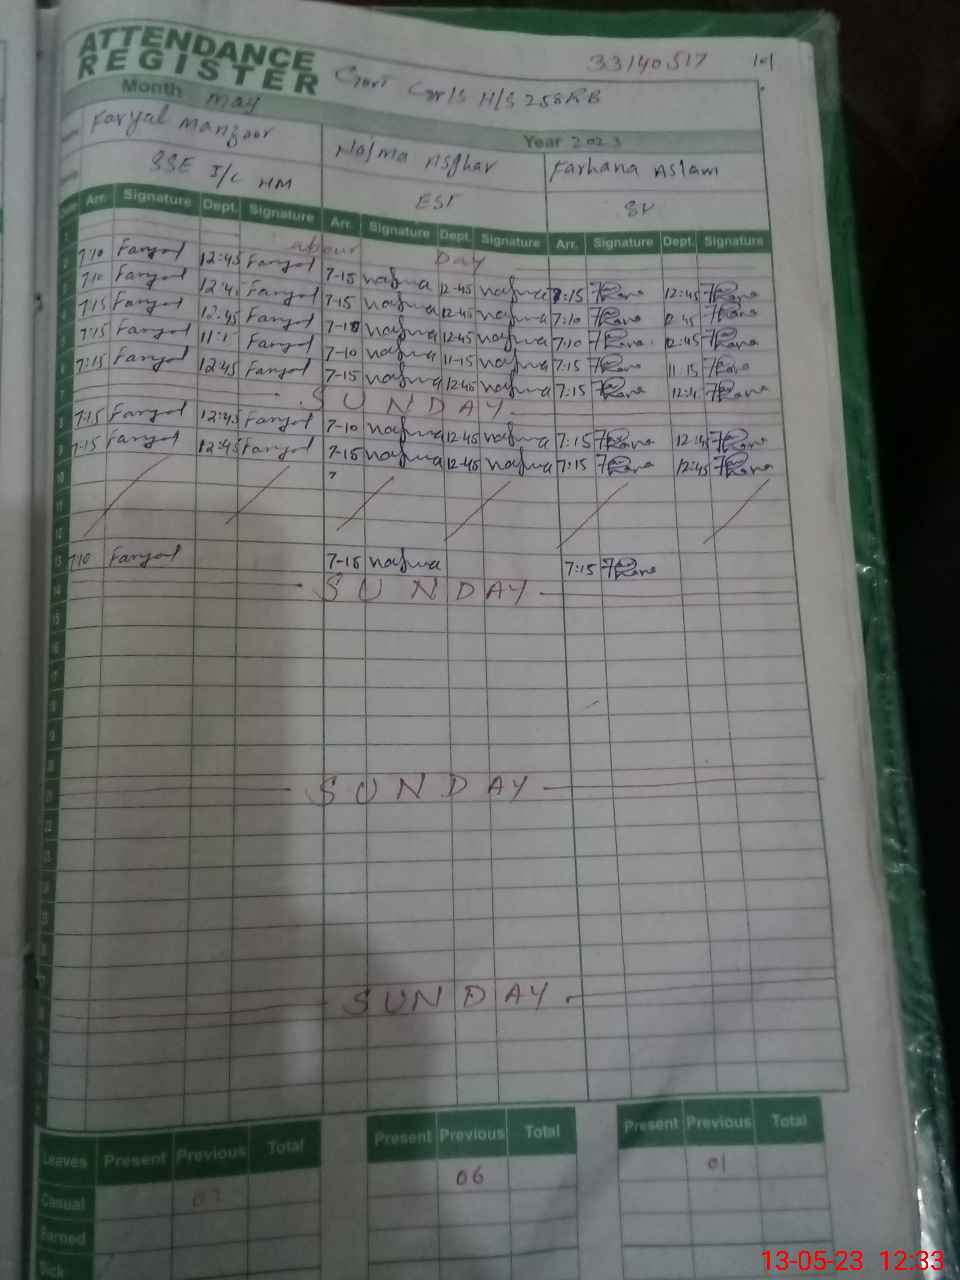 ATTENDANCE
REGISTER
33140517
101
Govt Gr/s H/S 258RB
Month May
Year 2023
Faryal Manzoor
Najma Asghar
Farhana Aslam
SSE I/C HM
EST
Arr. Signature Dept. Signature Arr. Signature Dept. Signature Arr. Signature Dept. Signature
1
labour Day
2 7:10 Faryal 12:45 Faryal 7-15 najma 12-45 najma 7:15 12:45
3 7:10 Faryal 12:45 Faryal 7-15 najma 12-45 najma 7:10 12:45
4 7:15 Faryal 12:45 Faryal 7-10 najma 12-45 najma 7:10 12:45
5 7:15 Faryal 11:15 Faryal 7-10 najma 11-15 najma 7:15 11:15
6 7:15 Faryal 12:45 Faryal 7-15 najma 12-45 najma 7:15 12:4
7 SUNDAY
8 7:15 Faryal 12:45 Faryal 7-10 najma 12-45 najma 7:15 12:45
9 7:15 Faryal 12:45 Faryal 7-15 najma 12-45 najma 7:15 12:45
10
11
12
13 7:10 Faryal 7-15 najma 7:15
14 SUNDAY
15
16
17
18
19
20
21 SUNDAY
22
23
SUNDAY
Leaves Present Previous Total Present Previous Total Present Previous Total
Casual 02 06 01
Earned
Sick
13-05-23 12:33